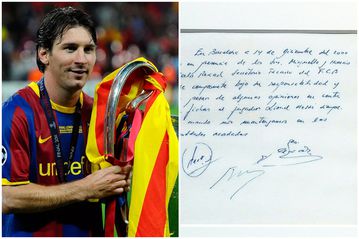 unicef
En Barcelona, a 14 de Diciembre del 2000
en presencia de los Srs. Minguella y Horacio
Secretario Técnico del F.C.B
se compromete bajo su responsabilidad y
a pesar de algunas opiniones en contra
fichar al jugador Lionel Messi siempre
y cuando nos mantengamos en las
cantidades acordadas.